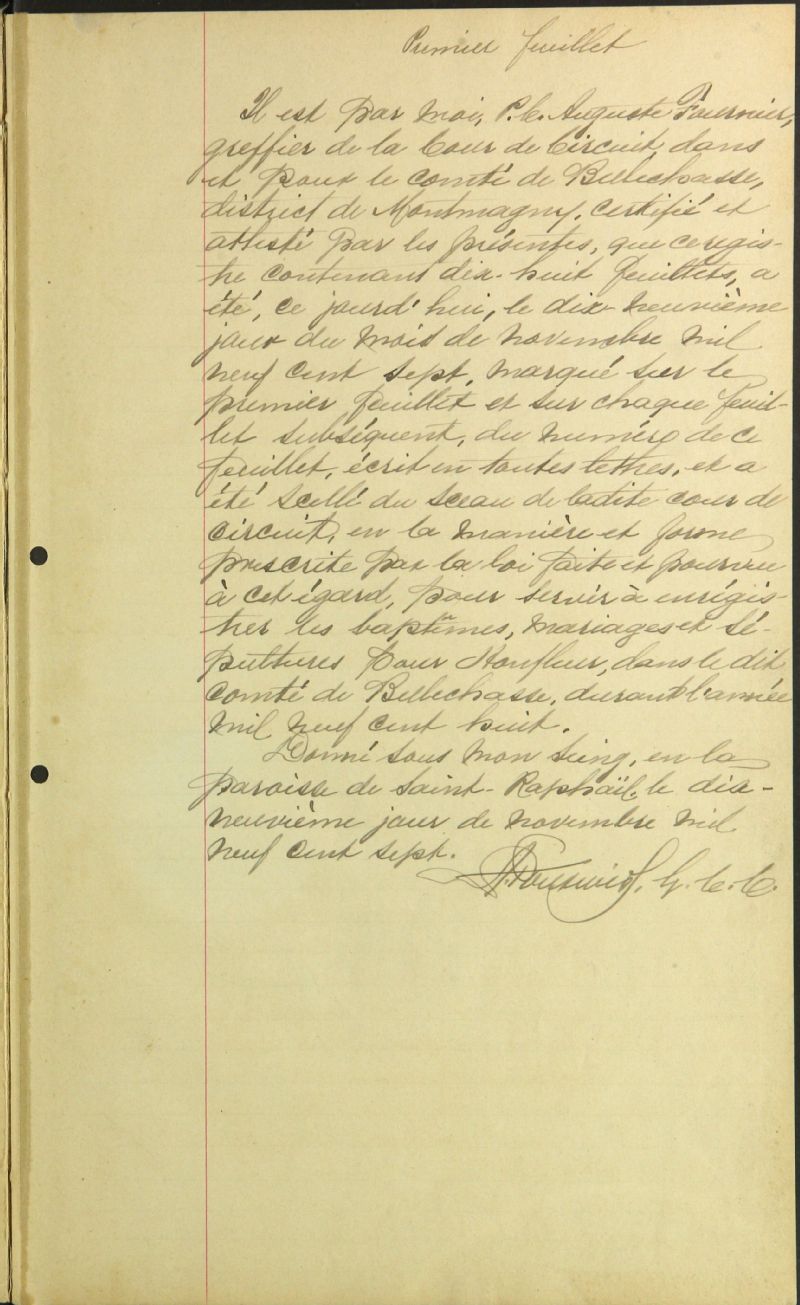 Premier feuillet
Il est par moi, P.C. Auguste Fournier,
greffier de la Cour de Circuit, dans
et pour le comté de Bellechasse,
district de Montmagny, certifié et
attesté par les présentes, que ce regis-
tre contenant dix-huit feuillets, a
été, ce jourd'hui, le dix-neuvième
jour du mois de novembre mil
neuf cent sept, marqué sur le
premier feuillet et sur chaque feuil-
let subséquent, du numéro de ce
feuillet, écrit en toutes lettres, et a
été scellé du sceau de ladite cour de
circuit, en la manière et forme
prescrite par la loi faite et pourvue
à cet égard, pour servir à enrégis-
trer les baptêmes, mariages et sé-
pultures pour Honfleur, dans le dit
comté de Bellechasse, durant l'année
mil neuf cent huit.
Donné sous mon seing, en la
paroisse de Saint-Raphaël, le dix-
neuvième jour de novembre mil
neuf cent sept.
Fournier, G. C. C.